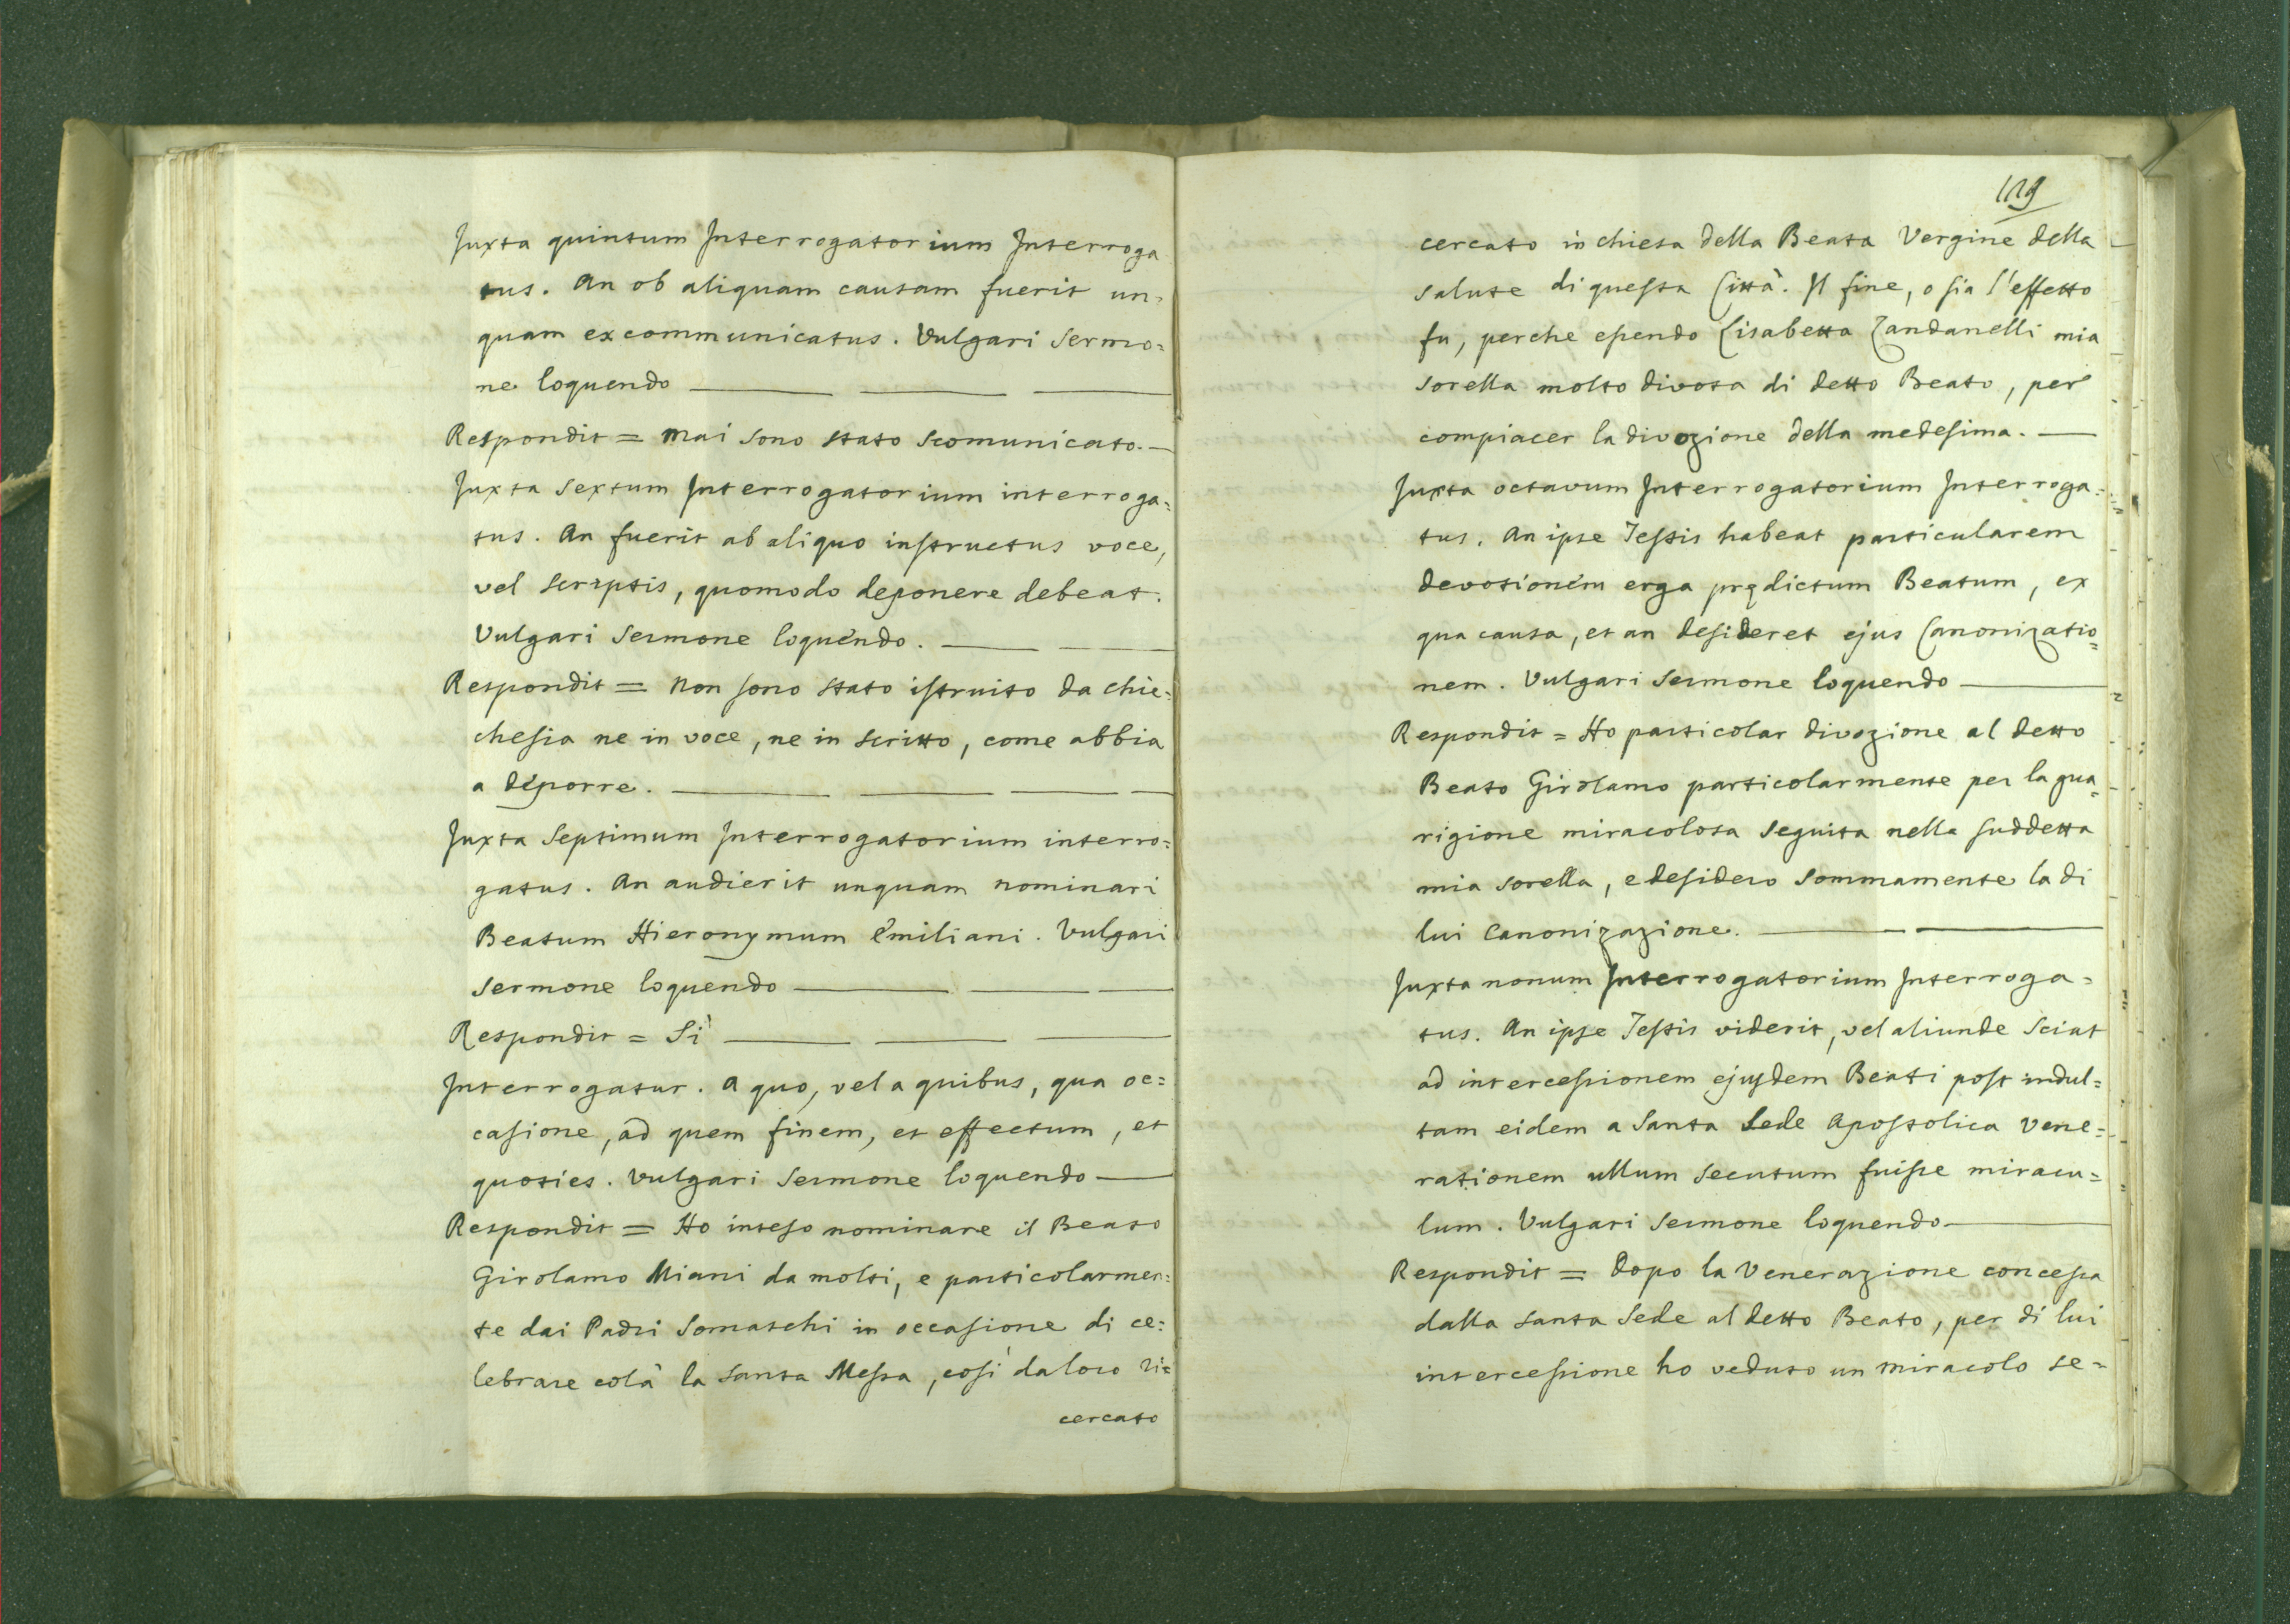 Juxta quintum Interrogatorium Interroga
tus. An ob aliquam causam fuerit un=
quam excommunicatus. Vulgari Sermo=
ne loquendo
Respondit = Mai sono stato scomunicato.
Juxta Sextum Interrogatorium interroga=
tus. An fuerit ab aliquo instructus voce,
vel scriptis, quomodo deponere debeat.
Vulgari Sermone loquendo.
Respondit = Non sono stato istruito da chie=
chesia ne in voce, ne in scritto, come abbia
a deporre.
Juxta Septimum Interrogatorium interro=
gatus. An audierit unquam nominari
Beatum Hieronymum Emiliani. Vulgari
Sermone loquendo
Respondit = Sì
Interrogatur. A quo, vel a quibus, qua oc=
casione, ad quem finem, et effectum, et
quoties. Vulgari Sermone loquendo
Respondit = Ho inteso nominare il Beato
Girolamo Miani da molti, e particolarmen=
te dai Padri Somaschi in occasione di ce=
lebrare colà la Santa Messa, così da loro ri=
cercato
119
cercato in chiesa della Beata Vergine della
salute di questa Città. Il fine, o sia l'effetto
fu, perche essendo Lisabetta Zandanelli mia
sorella molto divota di detto Beato, per
compiacer la divozione della medesima.
Juxta octavum Interrogatorium Interroga=
tus. An ipse Testis habeat particularem
devotionem erga prędictum Beatum, ex
qua causa, et an desideret ejus Canonizatio=
nem. Vulgari Sermone loquendo
Respondit = Ho particolar divozione al detto
Beato Girolamo particolarmente per la gua=
rigione miracolosa seguita nella suddetta
mia sorella, e desidero sommamente la di
lui Canonizazione.
Juxta nonum Interrogatorium Interroga=
tus. An ipse Testis viderit, vel aliunde sciat
ad intercessionem ejusdem Beati post indul=
tam eidem a Santa Sede Apostolica Vene=
rationem ullum secutum fuisse miracu=
lum. Vulgari Sermone loquendo
Respondit = Dopo la Venerazione concessa
dalla Santa Sede al detto Beato, per di lui
intercessione ho veduto un miracolo se=